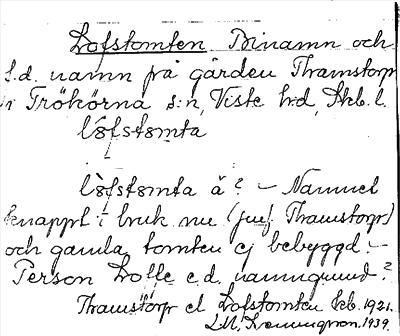 Lofstomten Binamn och
f.d. namn på gården Thamstorp
i Trökörna s:n, Viste h:d, Skb. l.
lȯfstȯmta
lȯfstȯmta ä? – Namnet
knappt i bruk nu (jmf. Thamstorp)
och gamla tomten ej bebyggd. –
Person Loffe e.d. namngrund?
Thamstorp el Lofstomten Jeb. 1921.
L.M. 1939.